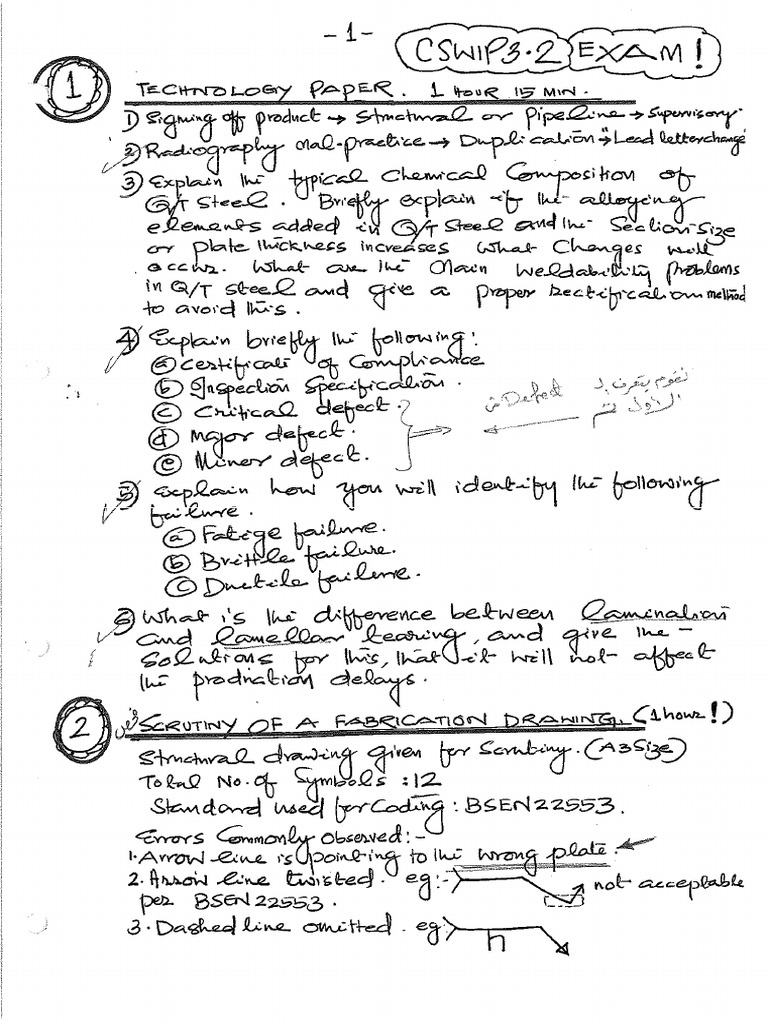 -1-
CSWIP3.2 EXAM!
1 TECHNOLOGY PAPER. 1 HOUR 15 MIN.
1) Signing off product → Structural or Pipeline → Supervisory.
2) Radiography mal-practice → Duplication → Lead letter change
3) Explain the typical Chemical Composition of
Q/T Steel. Briefly explain if the alloying
elements added in Q/T Steel and the Section Size
or plate thickness increases what Changes will
occur. What are the Main Weldability problems
in Q/T steel and give a proper rectification method
to avoid this.
4) Explain briefly the following:
a) certificate of Compliance
b) Inspection Specification.
c) Critical defect.
Defect
d) Major defect.
e) Minor defect.
5) Explain how you will identify the following
failure.
a) Fatige failure.
b) Brittle failure.
c) Ductile failure.
6) What is the difference between lamination
and lamellar tearing, and give the
Solutions for this, that it will not affect
the production delays.
2 SCRUTINY OF A FABRICATION DRAWING. (1 hour!)
Structural drawing given for Scrutiny. (A3 Size)
Total No. of Symbols : 12
Standard used for Coding : BSEN 22553.
Errors Commonly observed:-
1. Arrow line is pointing to the wrong plate.
2. Arrow line twisted. eg:- not acceptable
per BSEN 22553.
3. Dashed line omitted. eg: